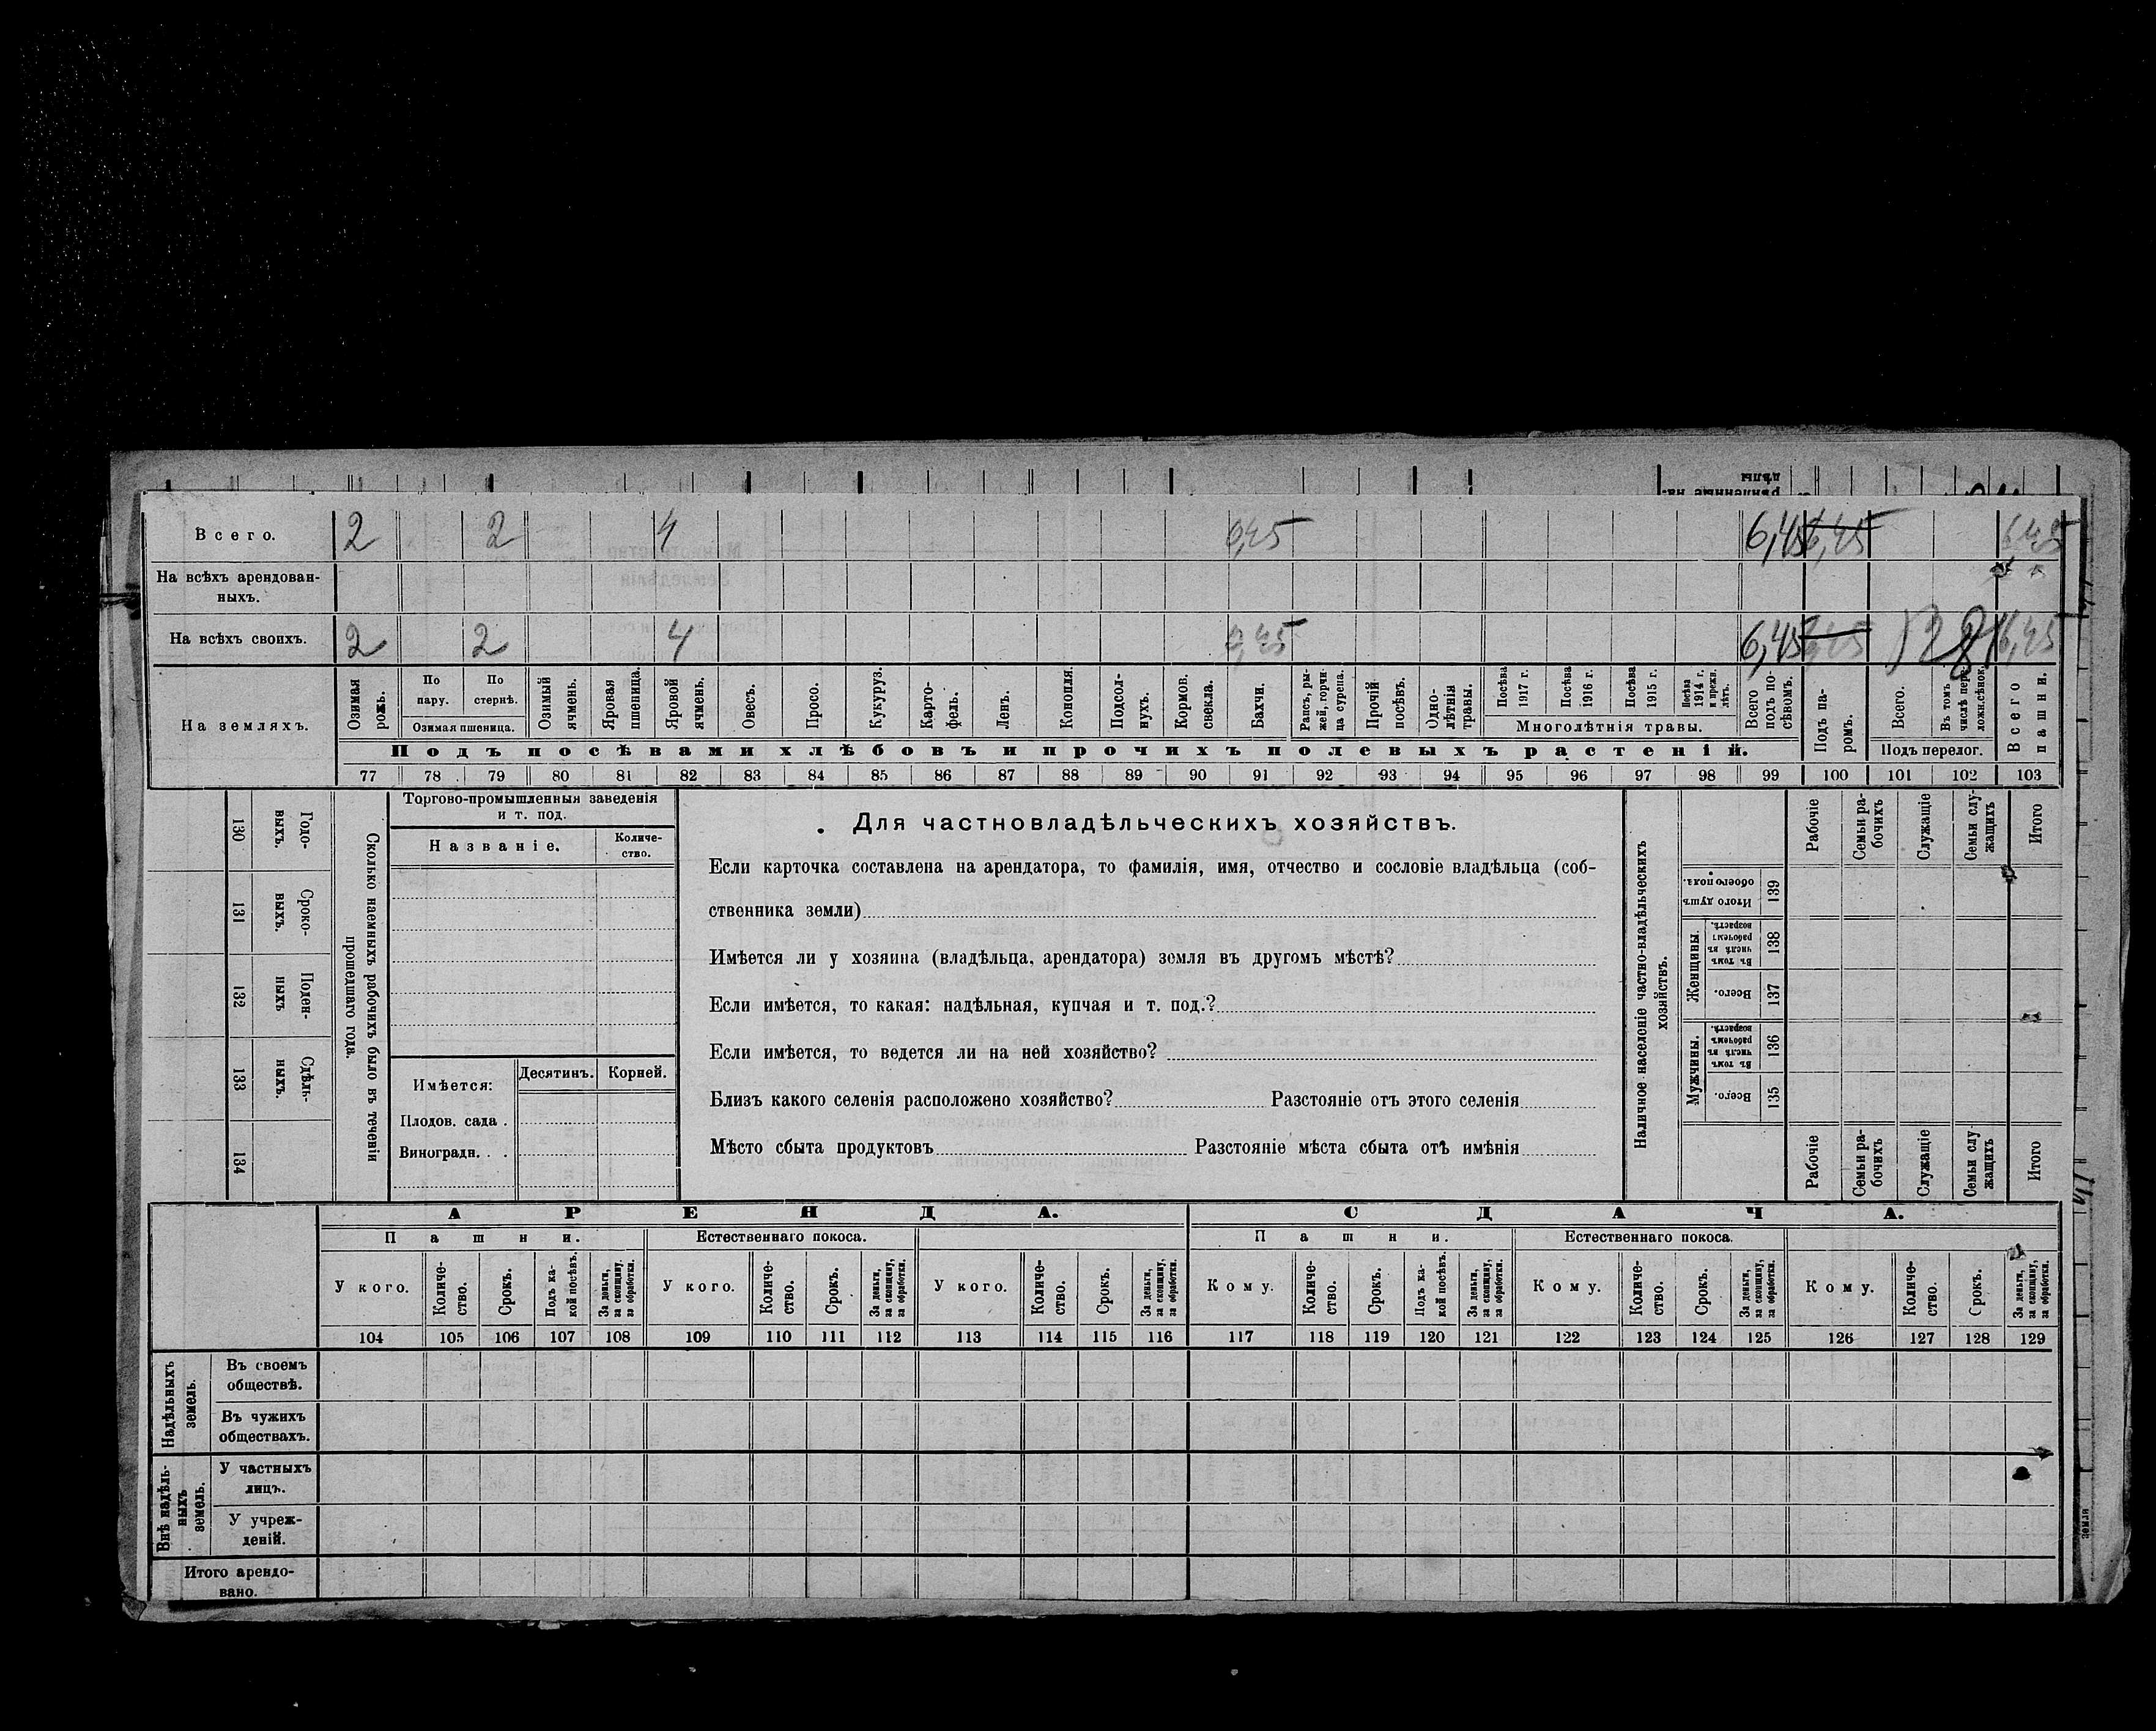 Всего. 2 2 4 6,45 6,45 6,45
На всѣхъ арендован-
ныхъ.
На всѣхъ своихъ. 2 2 4 6,45 6,45
На земляхъ.
Озимая рожь.
По пару.
По стернѣ.
Озимая пшеница.
Озимый ячмень.
Яровая пшеница.
Яровой ячмень.
Овесъ.
Просо.
Кукуруз.
Карто-
фель.
Ленъ.
Конопля.
Подсол-
нухъ.
Кормов. свекла.
Бахчи.
Рапсъ, ры-
жей, горчи-
ца сурепа.
Прочій посѣвъ.
Одно-
лѣтнія травы.
Посѣва 1917 г.
Посѣва 1916 г.
Посѣва 1915 г.
Посѣва 1914 г. и прежн. лѣтъ.
Многолѣтнія травы.
Всего подъ по-
сѣвомъ.
Подъ па-
ромъ.
Всего.
Въ томъ числѣ пере-
ложн.сѣнок.
Подъ перелог.
Всего пашни.
Подъ посѣвами хлѣбовъ и прочихъ полевыхъ растеній.
77 78 79 80 81 82 83 84 85 86 87 88 89 90 91 92 93 94 95 96 97 98 99 100 101 102 103
130 Годо-
выхъ.
131 Сроко-
выхъ.
132 Поден-
ныхъ
133 Сдѣль-
ныхъ.
134
Сколько наемныхъ рабочихъ было въ теченіи
прошедшаго года.
Торгово-промышленныя заведенія
и т. под.
Названіе.
Количе-
ство.
Имѣется:
Десятинъ. Корней.
Плодов. сада .
Виноградн. . .
Для частновладѣльческихъ хозяйствъ.
Если карточка составлена на арендатора, то фамилія, имя, отчество и сословіе владѣльца (соб-
ственника земли)
Имѣется ли у хозяина (владѣльца, арендатора) земля въ другомъ мѣстѣ?
Если имѣется, то какая: надѣльная, купчая и т. под.?
Если имѣется, то ведется ли на ней хозяйство?
Близъ какого селенія расположено хозяйство? Разстояніе отъ этого селенія
Мѣсто сбыта продуктовъ Разстояніе мѣста сбыта отъ имѣнія
Наличное населеніе частно-владѣльческихъ
хозяйствъ.
Рабочіе
Семьи ра-
бочихъ
Служащіе
Семьи слу-
жащихъ
Итого
Итого душъ обоего пола. 139
Женщины.
Въ томъ числѣ въ рабочемъ возрастѣ. 138
Всего. 137
Мужчины.
Въ томъ числѣ въ рабочемъ возрастѣ. 136
Всего. 135
Рабочіе
Семьи ра-
бочихъ
Служащіе
Семьи слу-
жащихъ
Итого
АРЕНДА. СДАЧА.
Пашни. Естественнаго покоса. Пашни. Естественнаго покоса.
У кого.
Количе-
ство.
Срокъ.
Подъ ка-
кой посѣвъ.
За деньги, за скопщину, за обработки.
У кого.
Количе-
ство.
Срокъ.
За деньги, за скопщину, за обработки.
У кого.
Количе-
ство.
Срокъ.
За деньги, за скопщину, за обработки.
Кому.
Количе-
ство.
Срокъ.
Подъ ка-
кой посѣвъ.
За деньги, за скопщину, за обработки.
Кому.
Количе-
ство.
Срокъ.
За деньги, за скопщину, за обработки.
Кому.
Количе-
ство.
Срокъ.
За деньги, за скопщину, за обработки.
104 105 106 107 108 109 110 111 112 113 114 115 116 117 118 119 120 121 122 123 124 125 126 127 128 129
Надѣльныхъ
земель.
Въ своемъ
обществѣ.
Въ чужихъ
обществахъ.
Внѣ надѣль-
ныхъ
земель.
У частныхъ
лицъ.
У учреж-
деній.
Итого арендо-
вано.